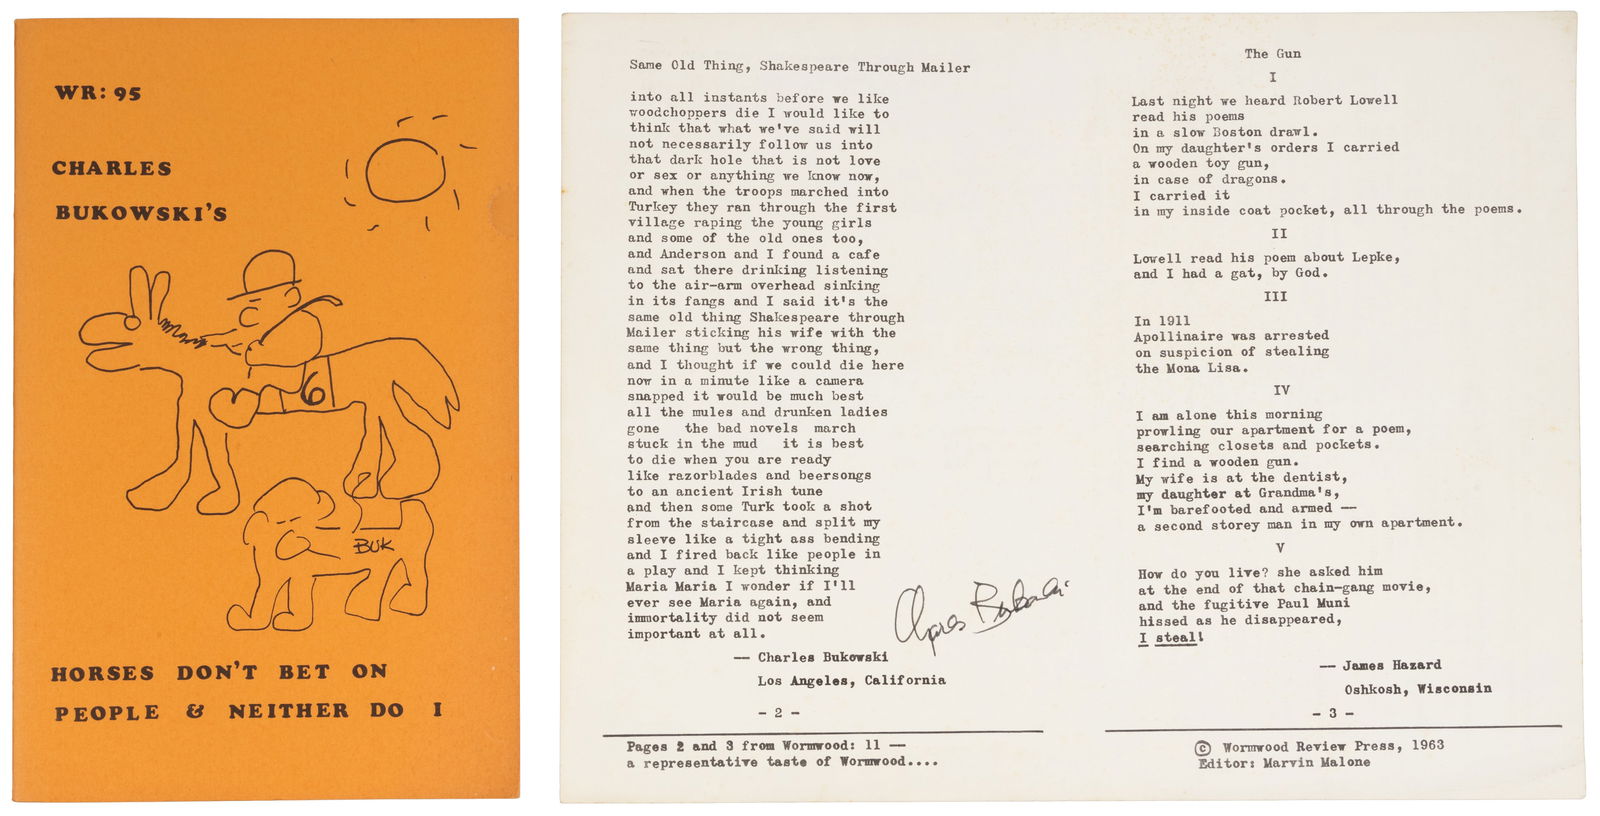 WR: 95
CHARLES
BUKOWSKI'S
6
BUK
HORSES DON'T BET ON
PEOPLE & NEITHER DO I
Same Old Thing, Shakespeare Through Mailer
into all instants before we like
woodchoppers die I would like to
think that what we've said will
not necessarily follow us into
that dark hole that is not love
or sex or anything we know now,
and when the troops marched into
Turkey they ran through the first
village raping the young girls
and some of the old ones too,
and Anderson and I found a cafe
and sat there drinking listening
to the air-arm overhead sinking
in its fangs and I said it's the
same old thing Shakespeare through
Mailer sticking his wife with the
same thing but the wrong thing,
and I thought if we could die here
now in a minute like a camera
snapped it would be much best
all the mules and drunken ladies
gone   the bad novels  march
stuck in the mud   it is best
to die when you are ready
like razorblades and beersongs
to an ancient Irish tune
and then some Turk took a shot
from the staircase and split my
sleeve like a tight ass bending
and I fired back like people in
a play and I kept thinking
Maria Maria I wonder if I'll
ever see Maria again, and
immortality did not seem
important at all.
Charles Bukowski
— Charles Bukowski
Los Angeles, California
- 2 -
Pages 2 and 3 from Wormwood: 11 —
a representative taste of Wormwood....
The Gun
I
Last night we heard Robert Lowell
read his poems
in a slow Boston drawl.
On my daughter's orders I carried
a wooden toy gun,
in case of dragons.
I carried it
in my inside coat pocket, all through the poems.
II
Lowell read his poem about Lepke,
and I had a gat, by God.
III
In 1911
Apollinaire was arrested
on suspicion of stealing
the Mona Lisa.
IV
I am alone this morning
prowling our apartment for a poem,
searching closets and pockets.
I find a wooden gun.
My wife is at the dentist,
my daughter at Grandma's,
I'm barefooted and armed —
a second storey man in my own apartment.
V
How do you live? she asked him
at the end of that chain-gang movie,
and the fugitive Paul Muni
hissed as he disappeared,
I steal!
— James Hazard
Oshkosh, Wisconsin
- 3 -
© Wormwood Review Press, 1963
Editor: Marvin Malone